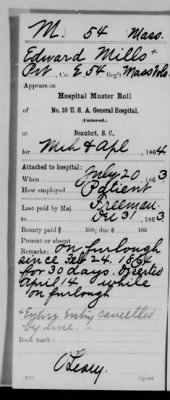 M. 54 Mass.
Edward Mills +
Pvt, Co. E 54 Reg't Mass Vols.
Appears on
Hospital Muster Roll
of
No. 10 U. S. A. General Hospital,
(Colored)
Beaufort, S. C.,
for Mch & Apl, 1864
Attached to hospital:
When July 20, 1863
How employed Patient
Last paid by Maj. Freeman
to Dec 31, 1863
Bounty paid $ 100; due $ 100
Present or absent
Remarks: On furlough
since Feb 24, 1864
for 30 days. Deserted
April 14 while
on furlough
+ Entire entry cancelled
by line.
Book mark:
O'Leary.
Copyist.